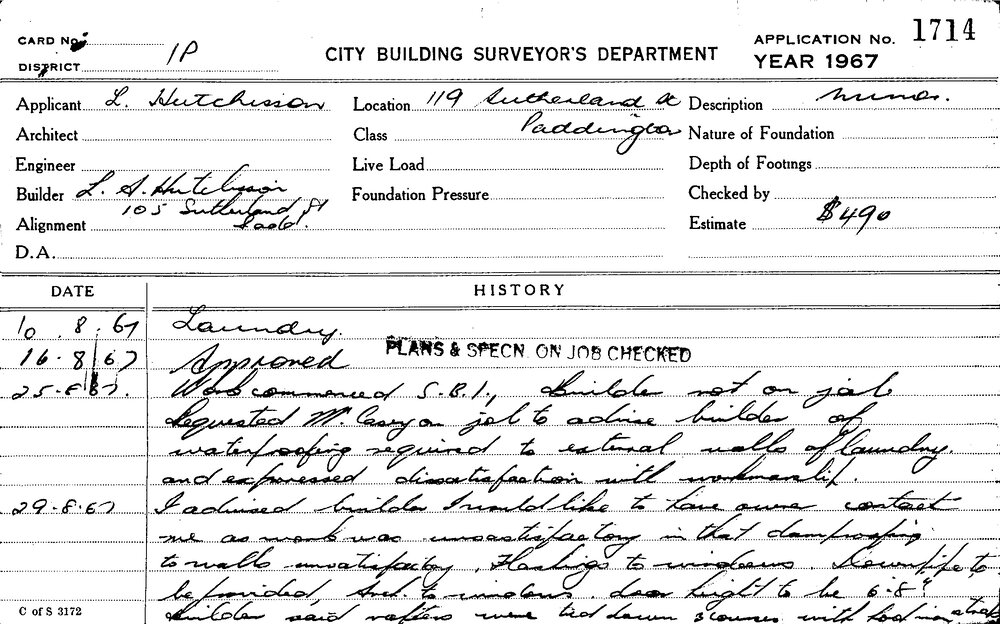 CARD No.
DISTRICT 1P
CITY BUILDING SURVEYOR'S DEPARTMENT
APPLICATION No. 1714
YEAR 1967
Applicant L. Hutchisson
Location 119 Sutherland St
Paddington
Description minor.
Architect
Class
Nature of Foundation
Engineer
Live Load
Depth of Footings
Builder L. A. Hutchisson
105 Sutherland St
Padd.
Foundation Pressure
Checked by
Alignment
Estimate $490
D.A.
DATE
HISTORY
10.8.67 Laundry.
16.8.67 Approved PLANS & SPECN. ON JOB CHECKED
25.8.67. Work commenced S.B.1., builder not on job
Requested Mr. Casey on job to advise builder of
waterproofing required to external walls of laundry.
and expressed dissatisfaction with workmanship.
29.8.67 I advised builder I would like to have owner contact
me as work was unsatisfactory in that damproofing
to walls unsatisfactory, Flashings to windows. Downpipe to
be provided, to windows. door height to be 6'-8"
builder said rafters were tied down 3 courses with
C of S 3172